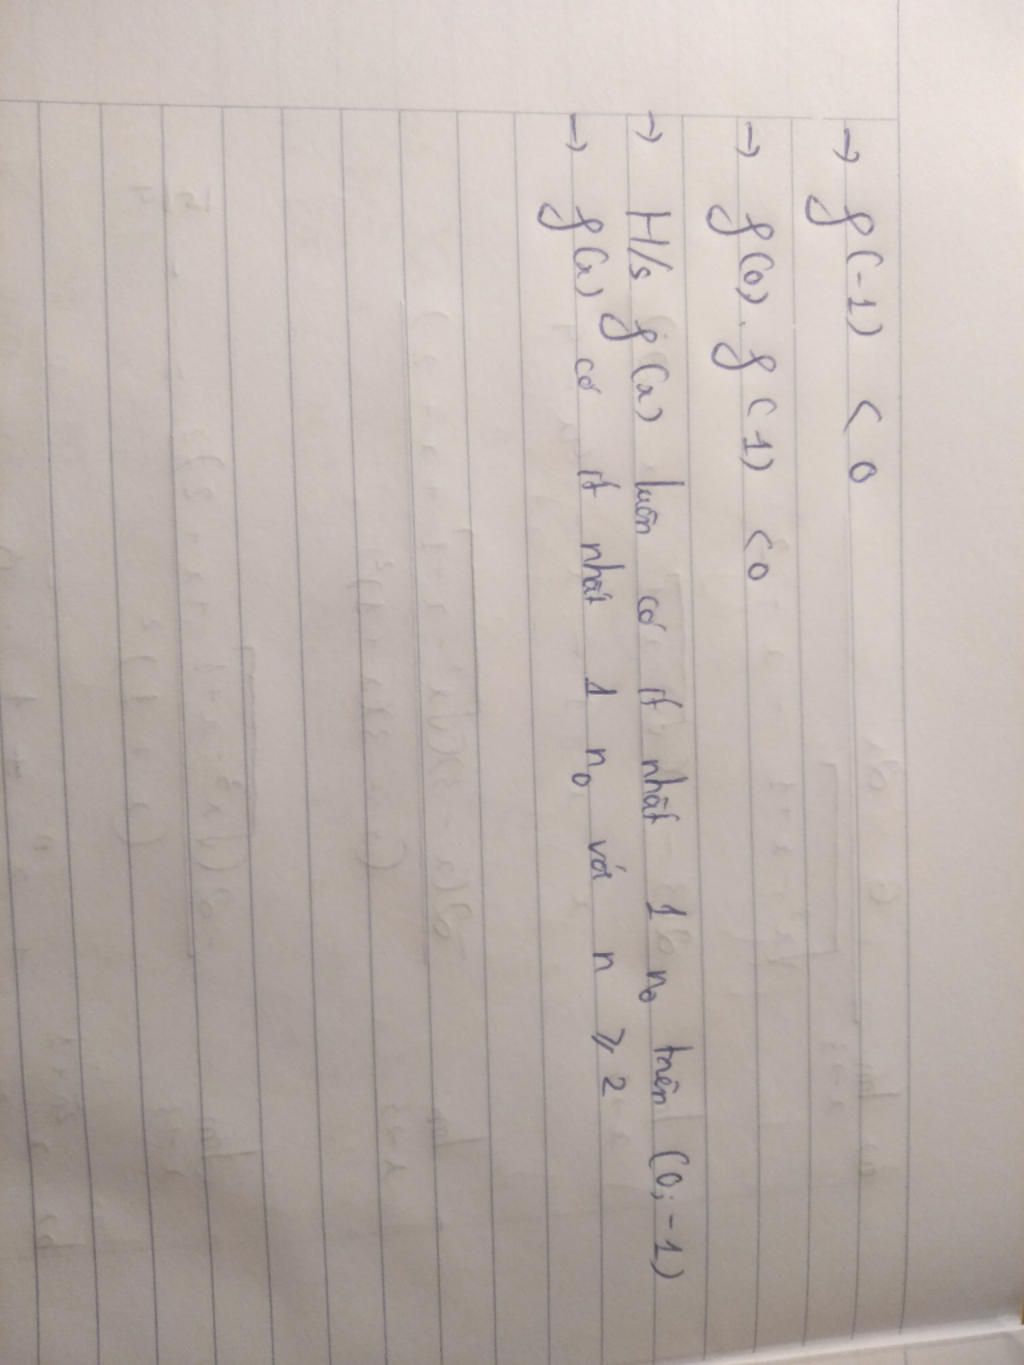 → f(-1) < 0
→ f(0). f(1) < 0
→ H/s f(x) luôn có ít nhất 1 n₀ trên (0; -1)
→ f(x) có ít nhất 1 n₀ với n ⩾ 2